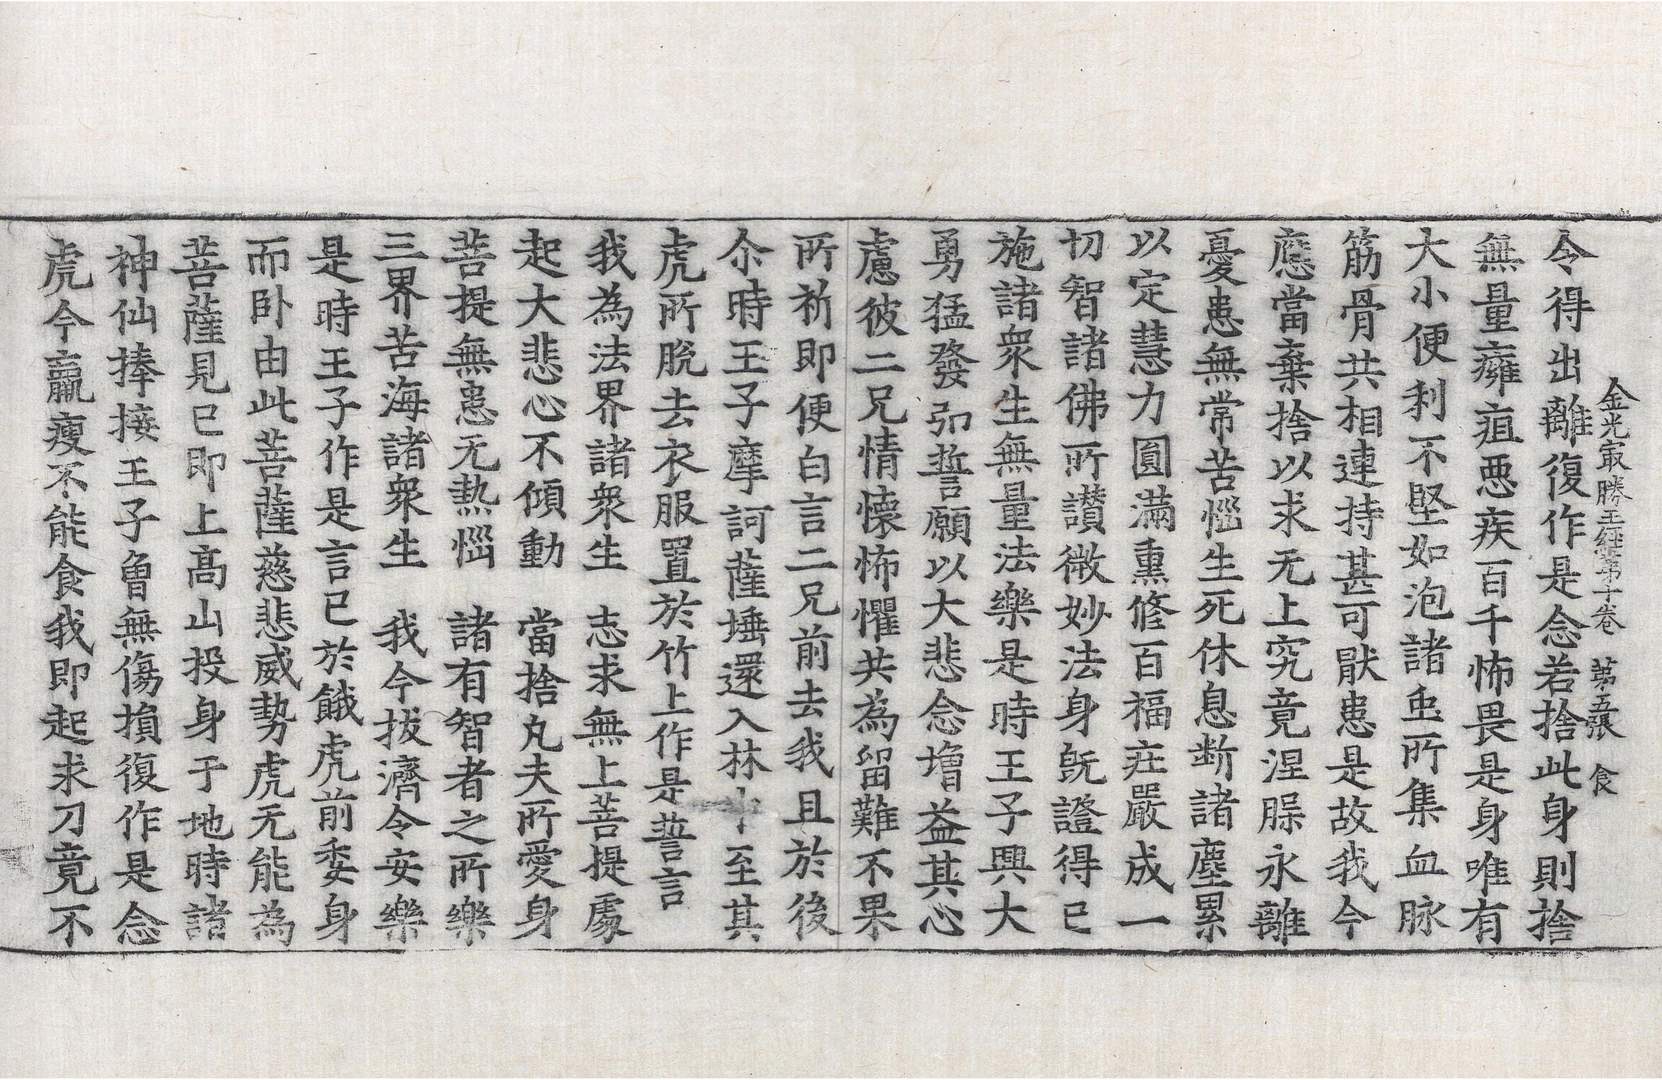 金光㝡勝王經第十卷　第五張　食
令得出離復作是念若捨此身則捨
無量癰疽惡疾百千怖畏是身唯有
大小便利不堅如泡諸虫所集血脉
筋骨共相連持甚可猒患是故我今
應當棄捨以求无上究竟涅槃永離
憂患無常苦惱生死休息断諸塵累
以定慧力圓滿熏修百福莊嚴成一
切智諸佛所讃微妙法身旣證得已
施諸衆生無量法樂是時王子興大
勇猛發弘誓願以大悲念增益其心
慮彼二兄情懷怖懼共為留難不果
所祈即便白言二兄前去我且於後
尒時王子摩訶薩埵還入林中至其
虎所脫去衣服置於竹上作是誓言
我為法界諸衆生　志求無上菩提處
起大悲心不傾動　當捨凡夫所愛身
菩提無患无熱惱　諸有智者之所樂
三界苦海諸衆生　我今拔濟令安樂
是時王子作是言已於餓虎前委身
而卧由此菩薩慈悲威勢虎无能為
菩薩見已即上高山投身于地時諸
神仙捧接王子曾無傷損復作是念
虎今羸瘦不能食我即起求刀竟不